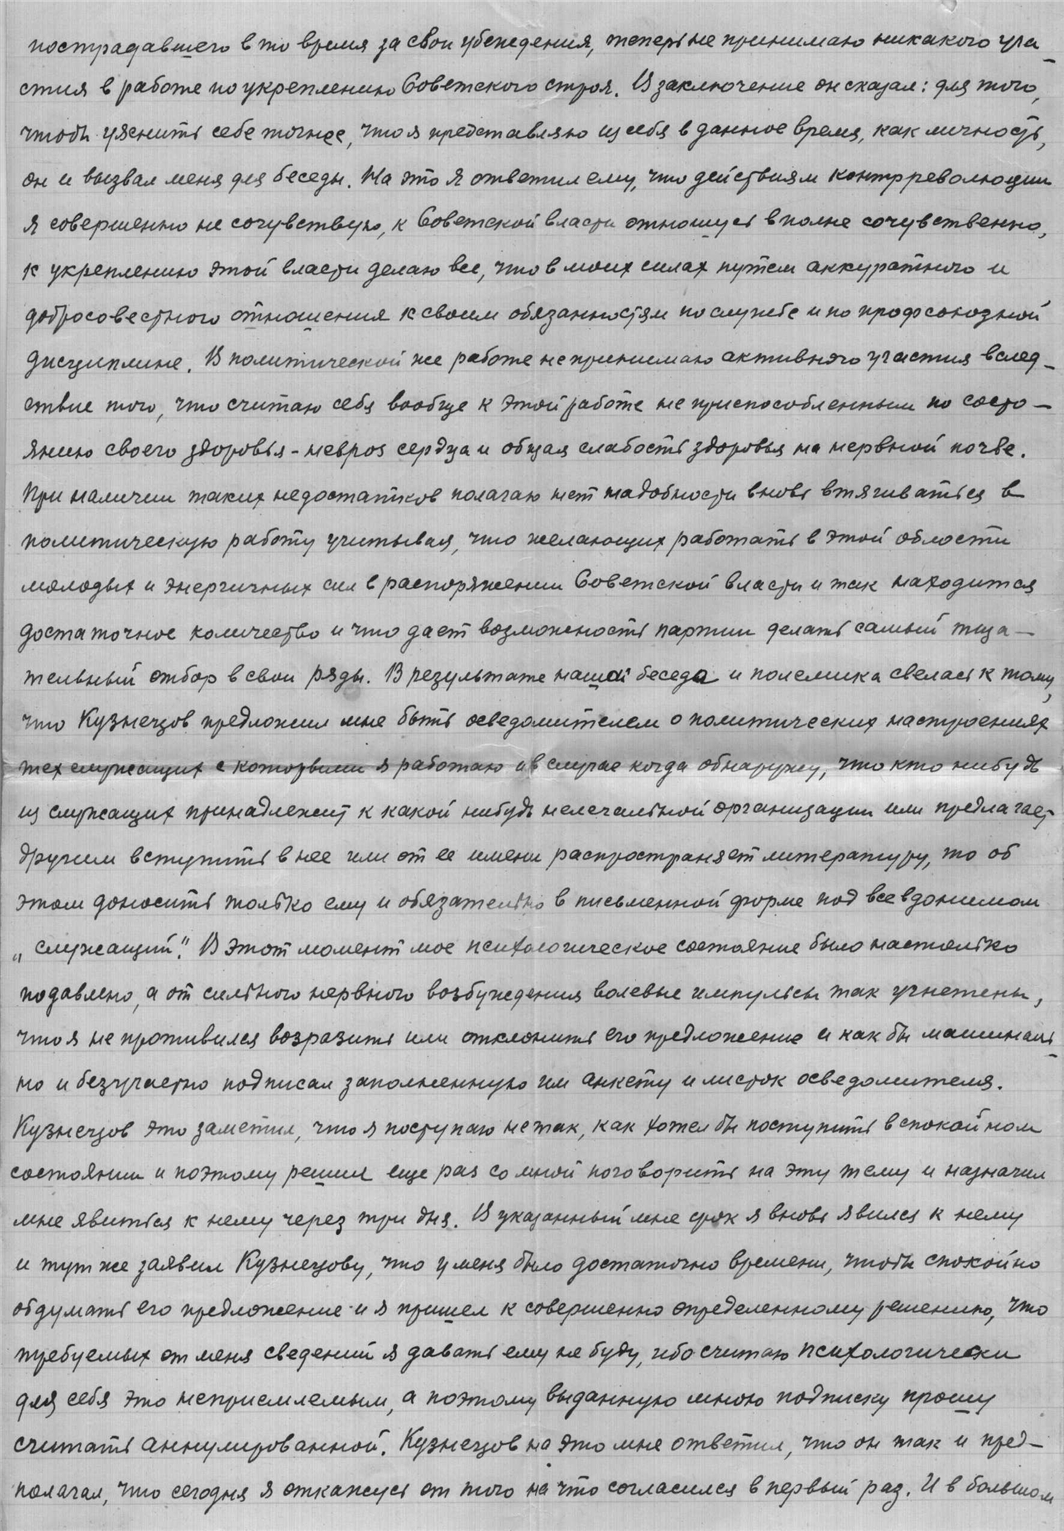 пострадавшего в то время за свои убеждения, теперь не принимаю никакого уча-
стия в работе по укреплению Советского строя. В заключение он сказал: для того,
чтобы уяснить себе точнее, что я представляю из себя в данное время, как личность,
он и вызвал меня для беседы. На это я ответил ему, что действиям контрреволюции
я совершенно не сочувствую, к Советской власти отношусь вполне сочувственно,
к укреплению этой власти делаю все, что в моих силах путем аккуратного и
добросовестного отношения к своим обязанностям по службе и по профсоюзной
дисциплине. В политической же работе не принимаю активного участия вслед-
ствие того, что считаю себя вообще к этой работе не приспособленным по состо-
янию своего здоровья - невроз сердца и общая слабость здоровья на нервной почве.
При наличии таких недостатков полагаю нет надобности вновь втягиваться в
политическую работу учитывая, что желающих работать в этой области
молодых и энергичных сил в распоряжении Советской власти и так находится
достаточное количество и что дает возможность партии делать самый тща-
тельный отбор в свои ряды. В результате наша беседа и полемика свелась к тому,
что Кузнецов предложил мне быть осведомителем о политических настроениях
тех служащих с которыми я работаю и в случае когда обнаружу, что кто нибудь
из служащих принадлежит к какой нибудь нелегальной организации или предлагает
другим вступить в нее или от ее имени распространяет литературу, то об
этом доносить только ему и обязательно в письменной форме под псевдонимом
„служащий". В этот момент мое психологическое состояние было настолько
подавлено, а от сильного нервного возбуждения волевые импульсы так угнетены,
что я не противился возразить или отклонить его предложение и как бы машиналь-
но и безучастно подписал заполненную им анкету и листок осведомителя.
Кузнецов это заметил, что я поступаю не так, как хотел бы поступить в спокойном
состоянии и поэтому решил еще раз со мной поговорить на эту тему и назначил
мне явиться к нему через три дня. В указанный мне срок я вновь явился к нему
и тут же заявил Кузнецову, что у меня было достаточно времени, чтобы спокойно
обдумать его предложение и я пришел к совершенно определенному решению, что
требуемых от меня сведений я давать ему не буду, ибо считаю психологически
для себя это неприемлемым, а поэтому выданную мною подписку прошу
считать аннулированной. Кузнецов на это мне ответил, что он так и пред-
полагал, что сегодня я откажусь от того на что согласился в первый раз. И в большом